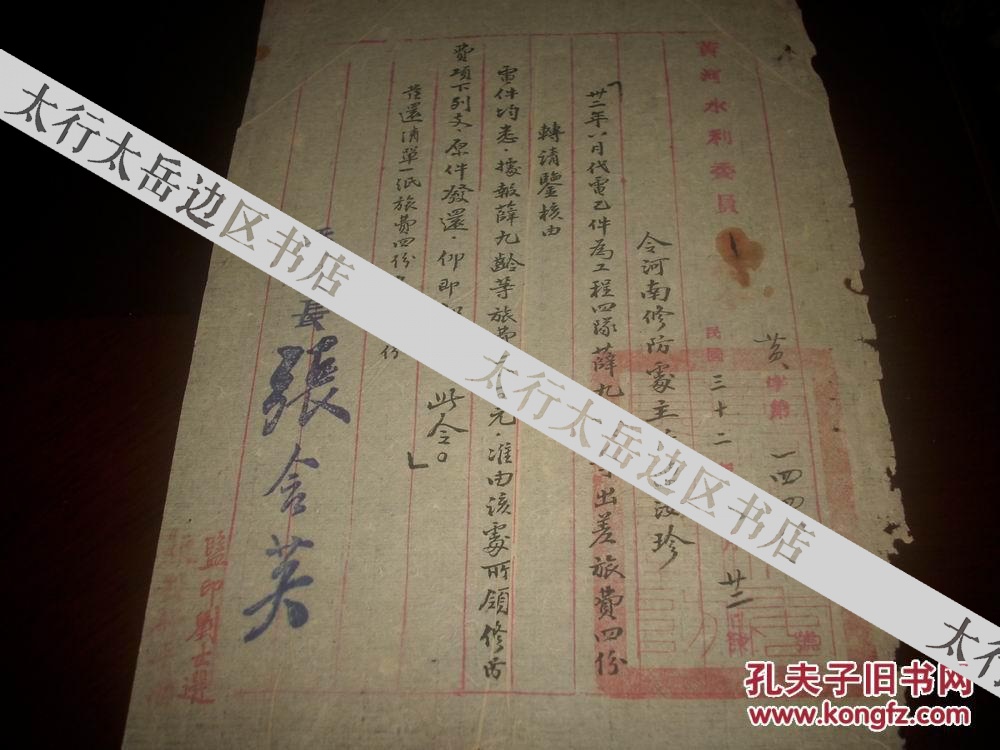 黄河水利委員
黄 字第 一四四
民國三十二 廿二日
號
令河南修防處主 珍
「卅二年八月代電乙件為工程四隊薛九 出差旅費四份
轉請鑒核由
電件均悉·據報薛九齡等旅費 元·准由該處所領修防
費項下列支·原件發還·仰即 此令。
發還清單一紙旅費四份 份」
長 張含英
監印劉士選
太行太岳边区书店
太行太岳边区书店
太行太
孔夫子旧书网
www.kongfz.com